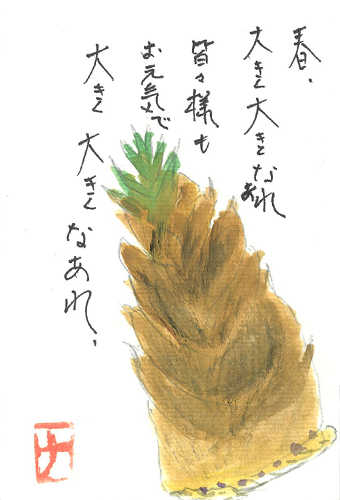 春、
大きく大きくなあれ
皆々様も
お元気で
大きく大きくなあれ、